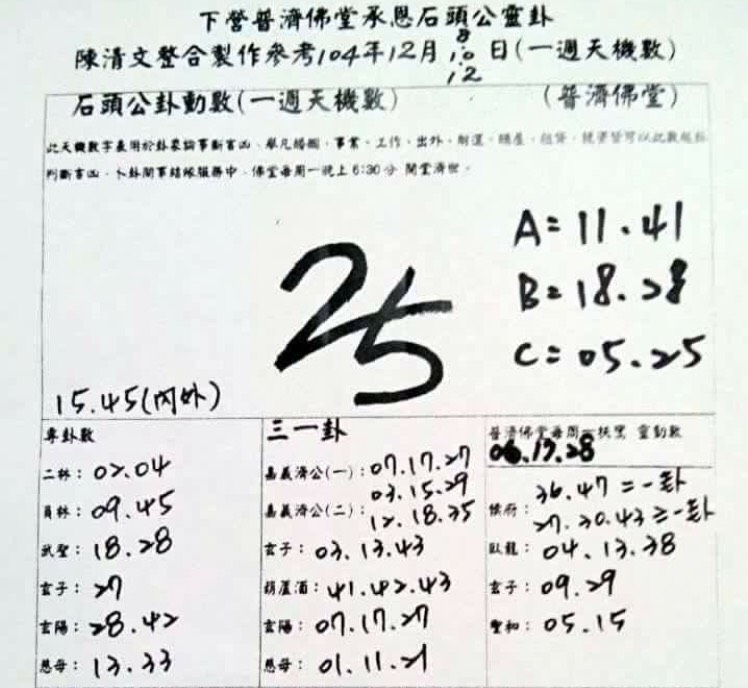 下營普濟佛堂承恩石頭公靈卦
陳清文整合製作參考104年12月8.10.12日(一週天機數)
石頭公卦動數(一週天機數) (普濟佛堂)
此天機數字表用於卦象論事斷吉凶、舉凡婚姻、事業、工作、出外、財運、
判斷吉凶、卜卦問事結緣服務中、佛堂每周一晚上6:30分 開堂濟世。
A=11.41
B=18.28
C=05.25
25
15.45(內外)
專卦數
二林:02.04
員林:09.45
武聖:18.28
玄子:27
玄陽:28.42
恩母:13.33
三一卦
嘉義濟公(一):07.17.27
03.15.29
嘉義濟公(二):12.18.35
玄子:03.13.43
葫蘆酒:41.42.43
玄陽:07.17.27
恩母:01.11.21
普濟佛堂每周一扶鸞 靈動數
06.13.28
36.47=一卦
候府:27.30.43=一卦
臥龍:04.13.38
玄子:09.29
聖和:05.15